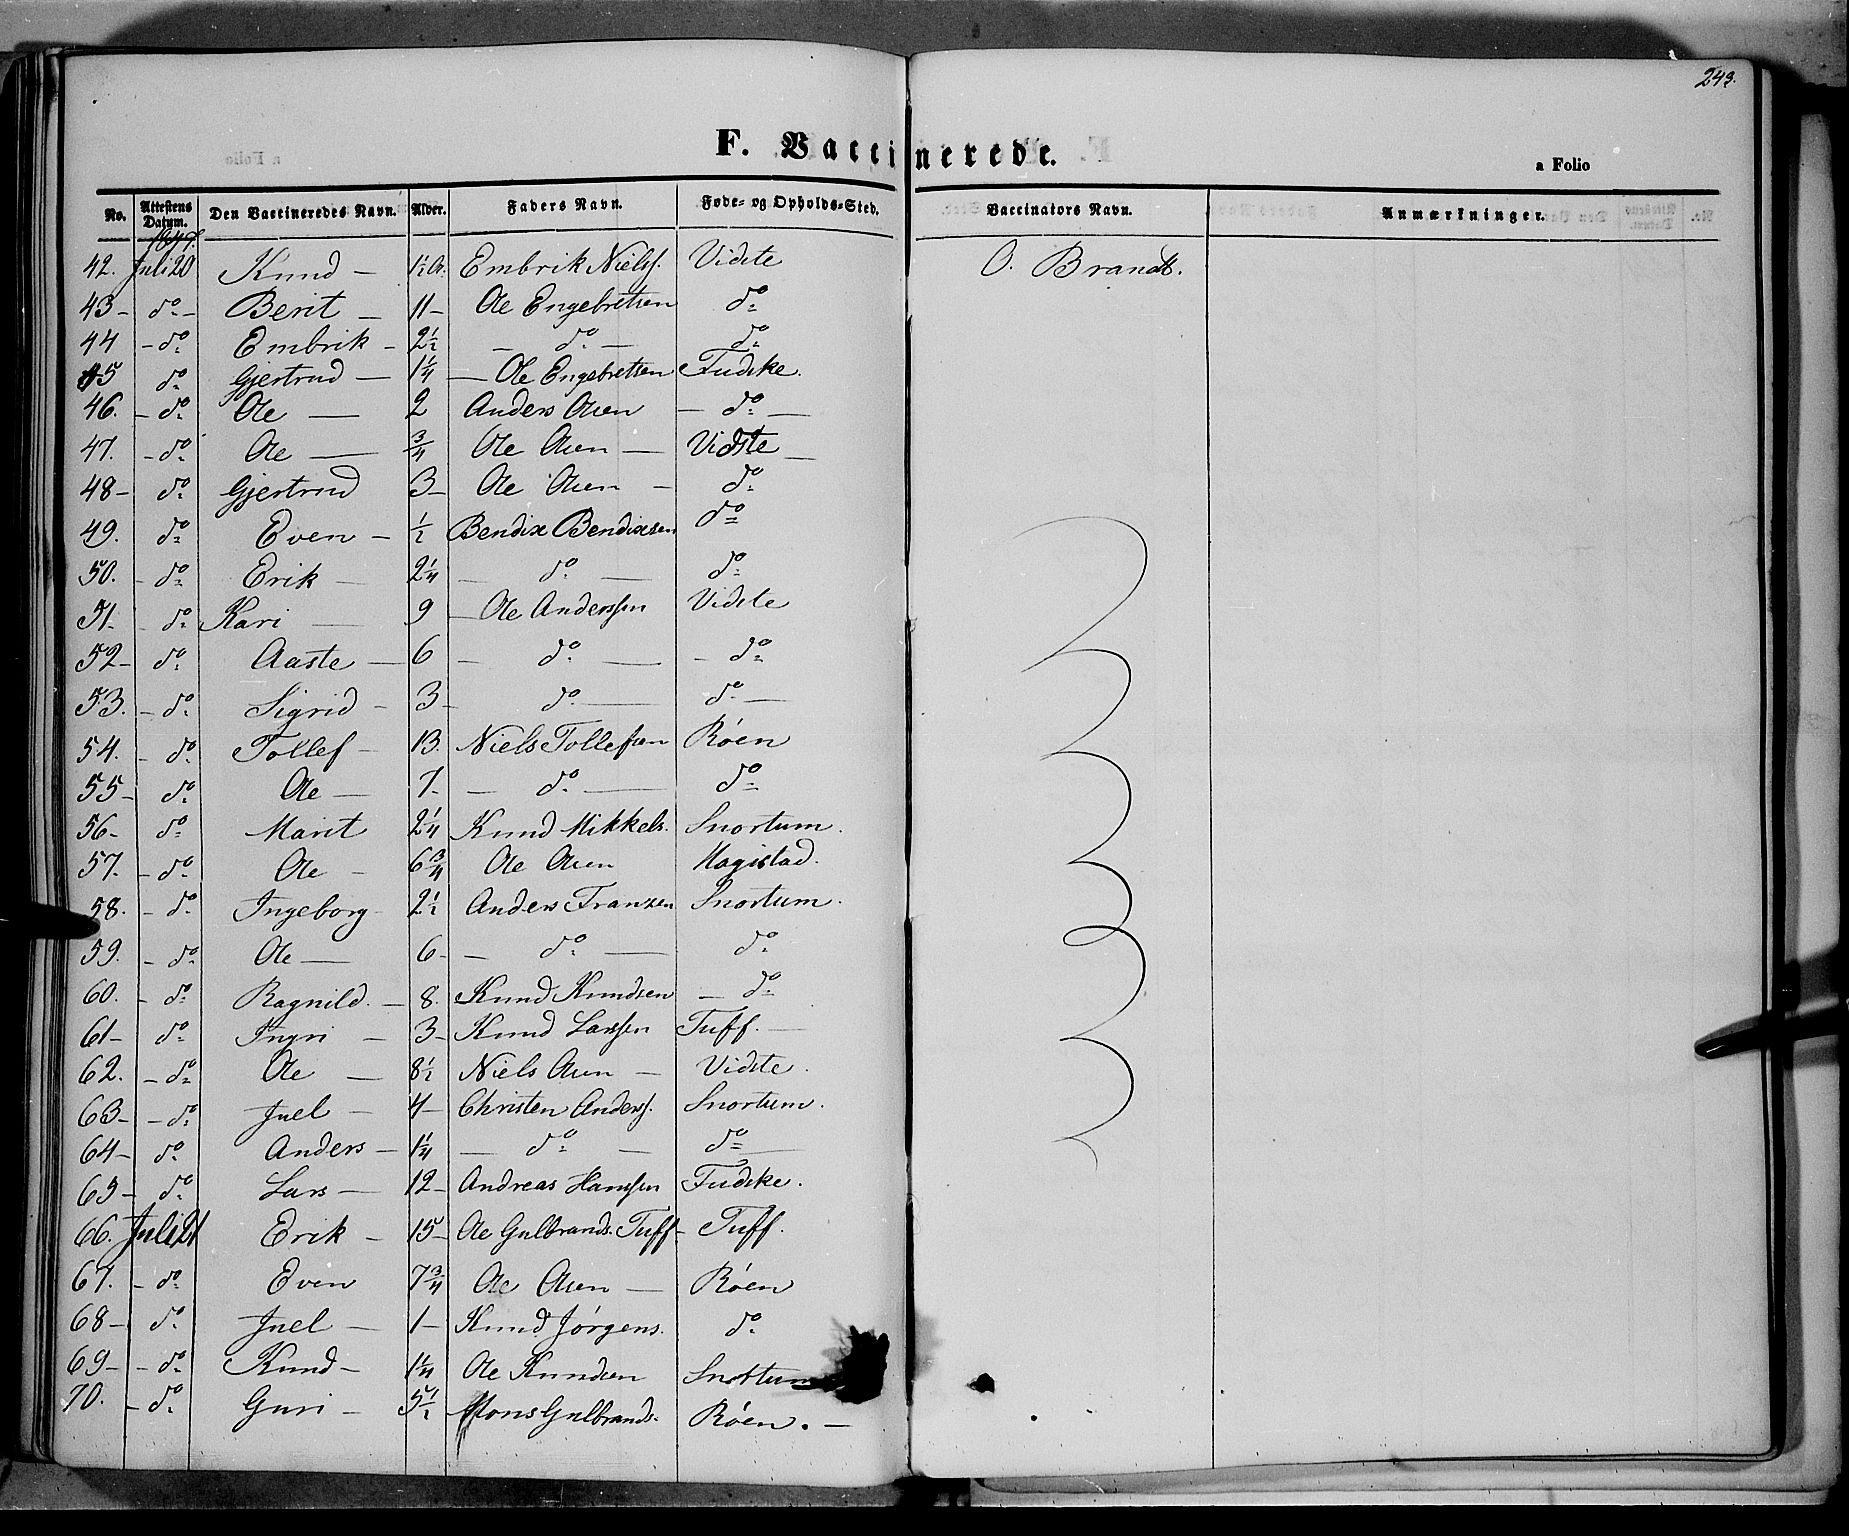 243.
F. Vaccinerede.
a Folio
No. Attestens Datum. Den Vaccineredes Navn. Alder. Faders Navn. Føde- og Opholds-Sted. Vaccinators Navn. Anmærkninger.
1847.
42. Juli 20 Knud — 1½ A. Embrik Nielss. Vidste O. Brandt.
43 - do - Berit — 11 - Ole Engebretsen do
44 - do Embrik - 2½ — do — do
45 do Gjertrud — 1¼ — Ole Engebretsen Fudske.
46. - do Ole — 2 Anders Olsen — do —
47. - do Ole — ¾ Ole Olsen — Vidste —
48 - do Gjertrud 3 - Ole Olsen — do
49. do Even - ½ Bendix Bendixsen do
50. - do Erik — 2¼ — do — do
51 - - do Kari — 9 — Ole Anderssen Vidste
52 - do Aaste — 6 — do — - do
53. - do Sigrid - 3 - do — do —
54. - do Tollef - 13. Niels Tollefsen Røen
55 - do Ole — 7 - — do — do
56 - do Marit 2¼ Knud Mikkels. Snortum.
57. - do Ole - 6¾ Ole Olsen Hagistad.
58. - do Ingeborg - 2½ Anders Franzen Snortum.
59. - do Ole — 6 - — do — do
60. - do Ragnild. — 8. Knud Knudsen — do
61 - do Ingri — 3 - Knud Larssen Tuff. —
62. - do Ole — 8½ Niels Olsen — Vidste.
63 - - do Juel — 4 - Christen Anderss. Snortum.
64 - do Anders — 1¼ — do — do —
65 - do Lars — 12 - Andreas Hanssen Fudske.
66. Juli 21 Erik - 15 - Ole Gulbrands. Tuff - Tuff.
67. - do Even 7¾ Ole Olsen — Røen
68 - do Juel — 1 - Knud Jørgens. do
69 - - do Knud - 1¼ Ole Knudsen Snortum
70. - do Guri - 5½ Mons Gulbrands. Røen. —